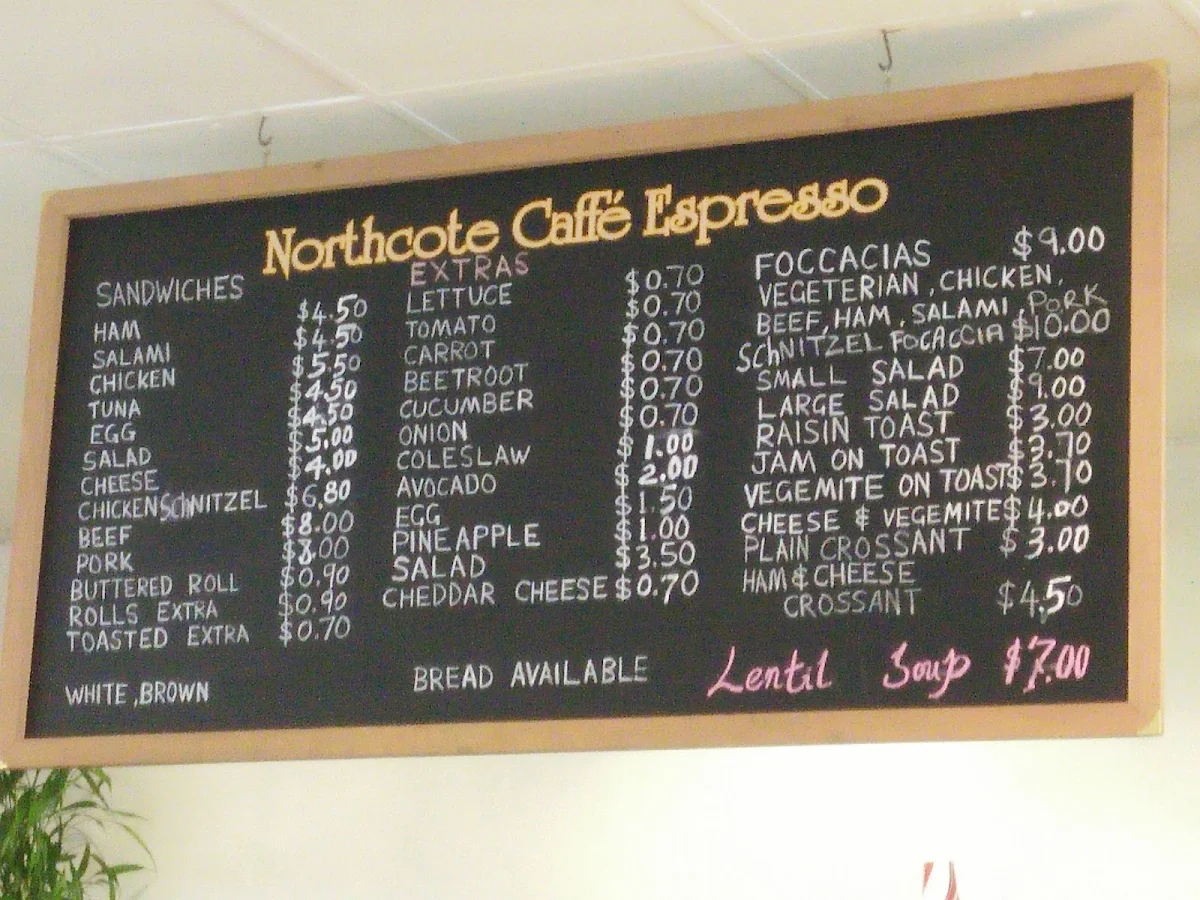 Northcote Caffé Espresso
SANDWICHES
HAM $4.50
SALAMI $4.50
CHICKEN $5.50
TUNA $4.50
EGG $4.50
SALAD $5.00
CHEESE $4.00
CHICKEN SCHNITZEL $6.80
BEEF $8.00
PORK $8.00
BUTTERED ROLL $0.90
ROLLS EXTRA $0.90
TOASTED EXTRA $0.70
EXTRAS
LETTUCE $0.70
TOMATO $0.70
CARROT $0.70
BEETROOT $0.70
CUCUMBER $0.70
ONION $0.70
COLESLAW $1.00
AVOCADO $2.00
EGG $1.50
PINEAPPLE $1.00
SALAD $3.50
CHEDDAR CHEESE $0.70
FOCCACIAS $9.00
VEGETERIAN, CHICKEN,
BEEF, HAM, SALAMI, PORK
SCHNITZEL FOCACCIA $10.00
SMALL SALAD $7.00
LARGE SALAD $9.00
RAISIN TOAST $3.00
JAM ON TOAST $3.70
VEGEMITE ON TOAST $3.70
CHEESE & VEGEMITE $4.00
PLAIN CROSSANT $3.00
HAM & CHEESE
CROSSANT $4.50
WHITE, BROWN BREAD AVAILABLE
Lentil Soup $7.00